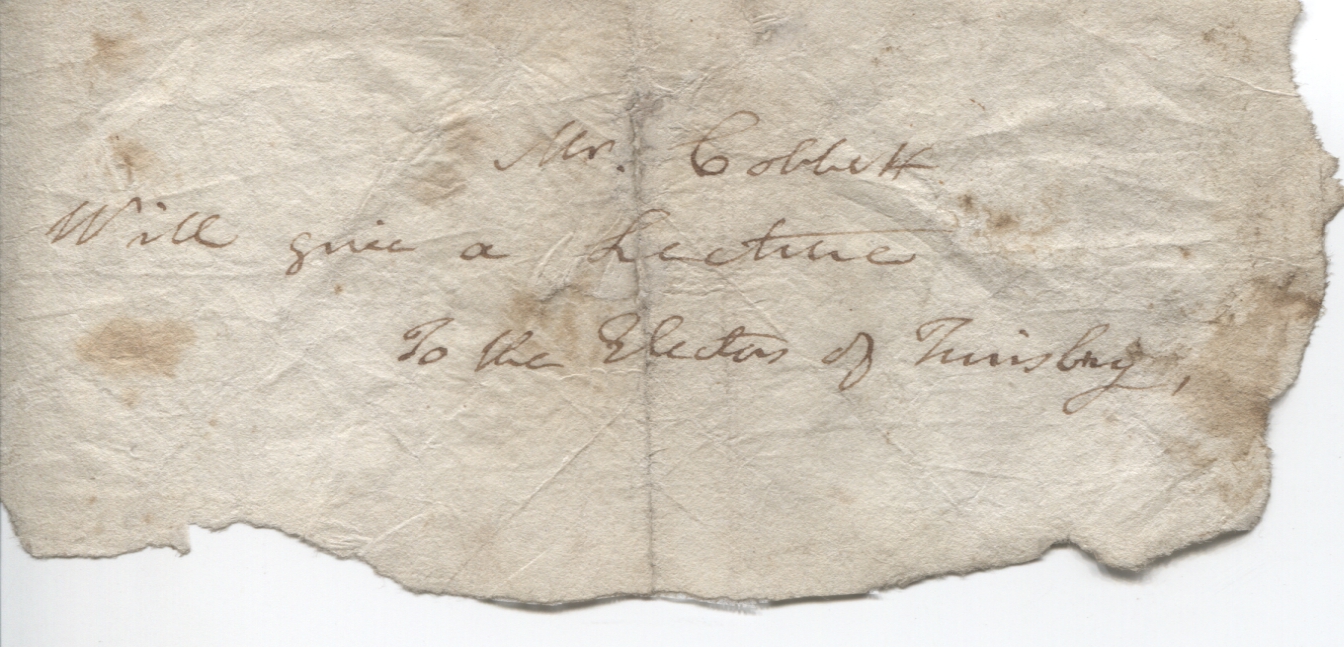 Mr. Cobbett
Will give a Lecture
To the Electors of Finsbury,